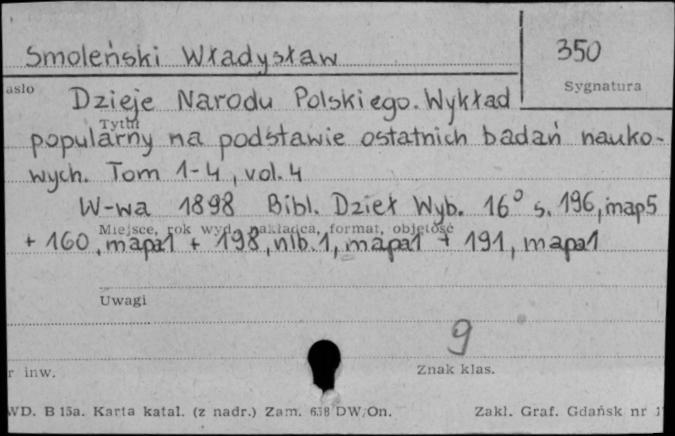 Smoleński Władysław
350
asło
Sygnatura
Dzieje Narodu Polskiego. Wykład
Tytuł
popularny na podstawie ostatnich badań nauko-
wych. Tom 1-4, vol. 4
W-wa 1898 Bibl. Dzieł Wyb. 16° s. 196, map 5
Miejsce, rok wyd., nakładca, format, objętość
+ 160, mapa 1 + 198, nlb. 1, mapa 1 + 191, mapa 1
Uwagi
9
r inw.
Znak klas.
WD. B 15a. Karta katal. (z nadr.) Zam. 638 DW/On.
Zakl. Graf. Gdańsk nr 1